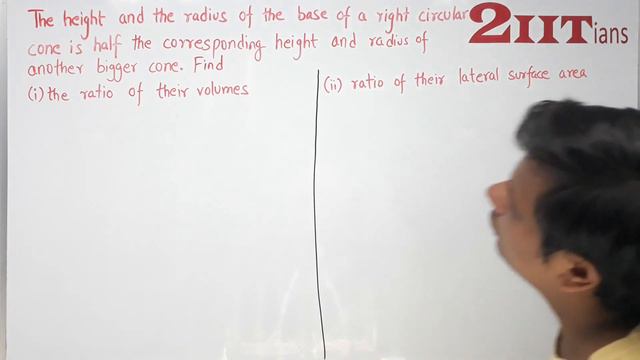 The height and the radius of the base of a right circular
cone is half the corresponding height and radius of
another bigger cone. Find
(i) the ratio of their volumes
(ii) ratio of their lateral surface area
2IITians